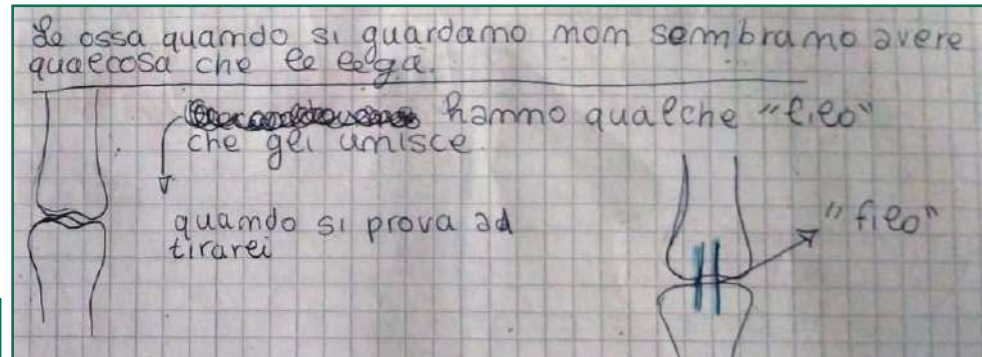 Le ossa quando si guardano non sembrano avere
qualcosa che le lega.
hanno qualche "filo"
che gli unisce.
quando si prova ad
tirarli
"filo"